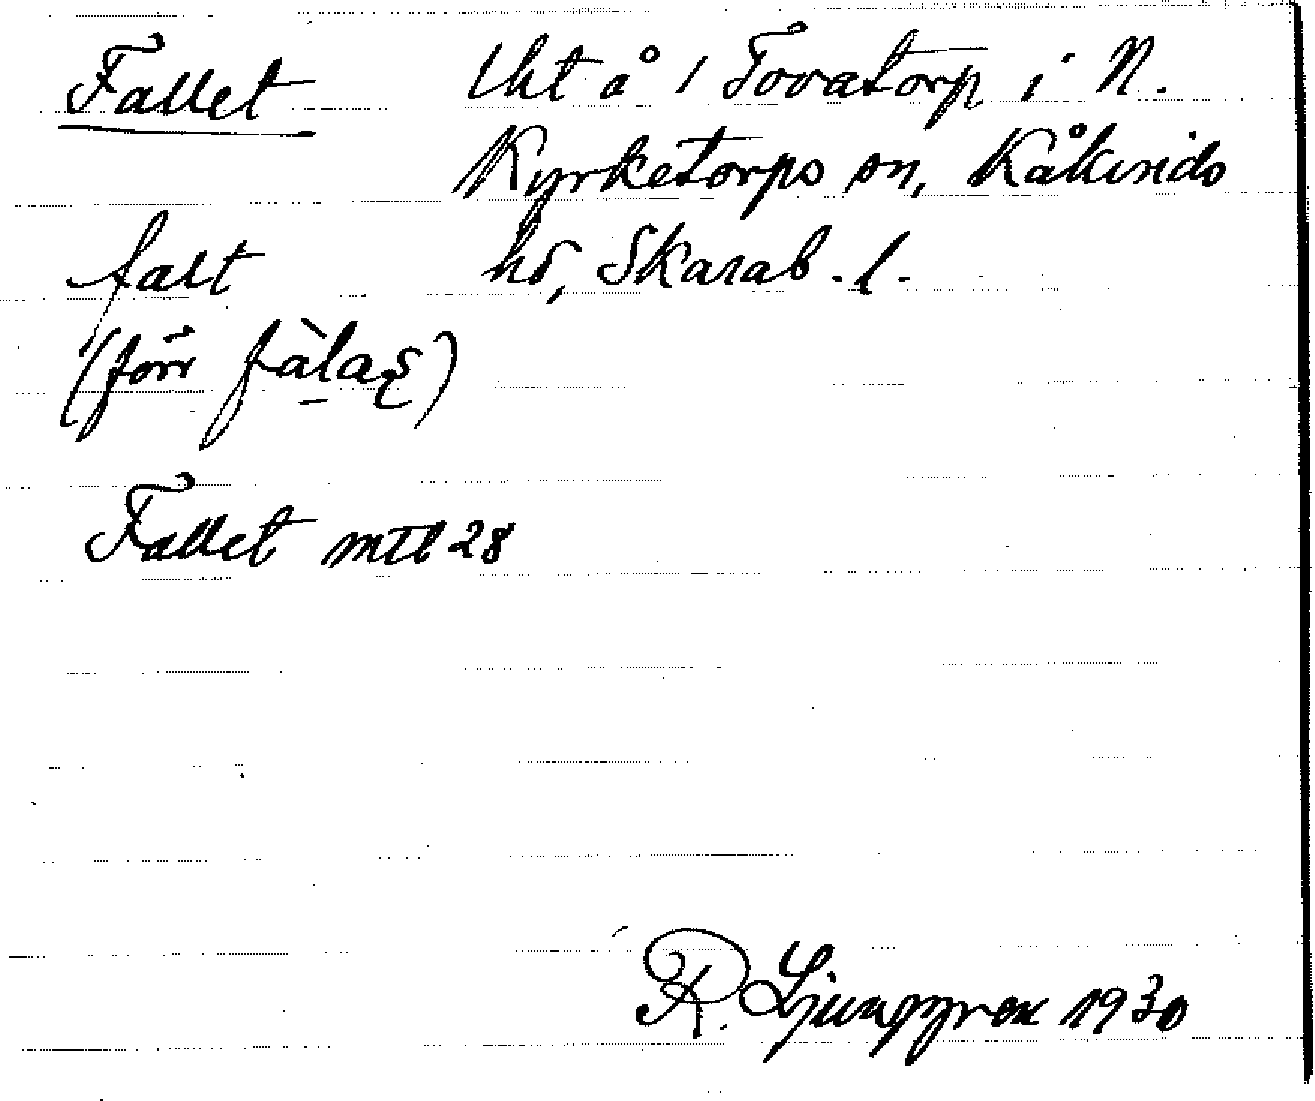 Fallet lht å 1 Tovatorp i N.
Kyrketorps sn, Kåkinds
falt hd, Skarab. l.
(förr fàlaʂ)
Fallet mtl 28
R. Ljunggren 1930